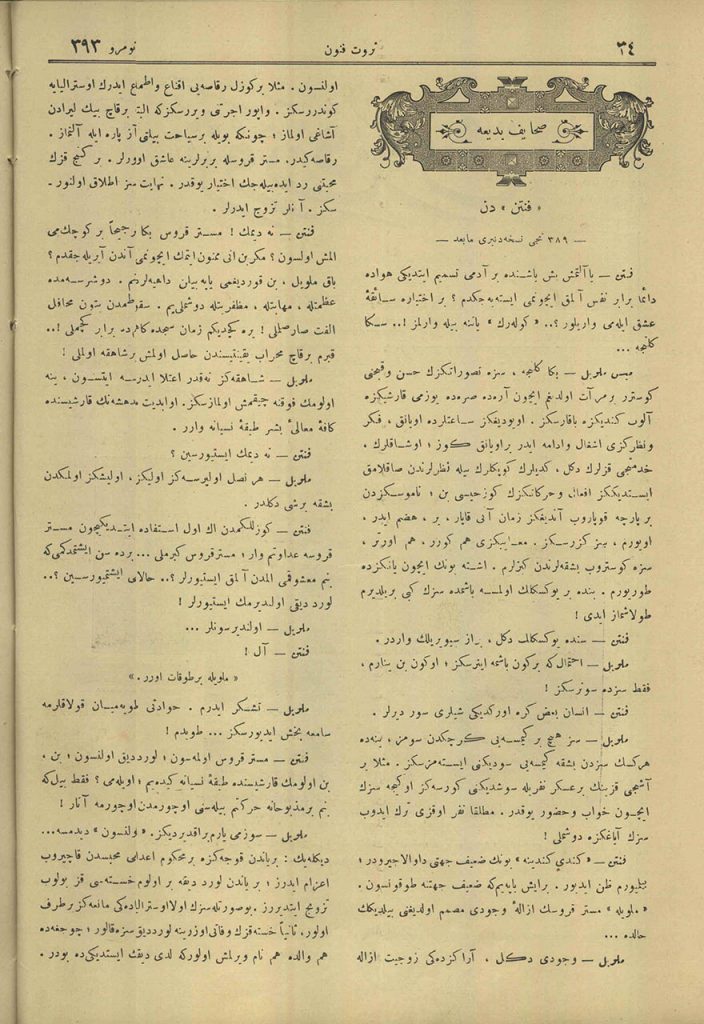 ٣٤
ثروت فنون
نومرو ٣٩٣
صحایف بدیعه
« فنتن » دن
— ٣٨٩ نجی نسخه‌دنبری مابعد —
فنتن — یا آلتمش بش یاشنده بر آدمی تسمیم ایتدیکی هواده
دائما برابر نفس آلمق ایچونمی ایسته‌یه‌جکدم ؟ بر اختیاره سائقهٔ
عشق ایله‌می واریلور ؟.. « کوله‌رك » یاننه بیله وارلمز !.. سسکا
کلنجه ...
میس ملویل — بکا کلنجه ، سزه تصوراتکزك حسن وقبحنی
کوسترر بر مرآت اولدیغم ایچون آره‌ده صره‌ده یوزمی قارشیکزه
آلوب کندیکزه باقارسکز . اویودیغکز ساعتلرده اویانق ، فکر
ونظرکزی اشغال وادامه ایدر براویانق کوز ؛ اوشاقلرك ،
خدمتجی قزلرك دکل ، کدیلرك کوپکلرك بیله نظرلرندن صاقلامق
ایستدیککز افعال وحرکاتکزك کوزجیسی بن ؛ ناموسکزدن
بر پارچه قوپاروب آندیغکز زمان آنی قاپار ، بر ، هضم ایدر ،
اویورم ، سز کزرسکز . معایبکزی هم کورر ، هم اورتر ،
سزه کوستروب بشقه‌لرندن کزلرم . اشته بونك ایچون یانکزده
طورییورم . بنده بر یوکسکلك اولمسه باشمده سزك کبی بریلدیرم
طولاشماز ایدی !
فنتن — سنده یوکسکلك دکل ، براز سیوریلك واردر .
ملویل — احتمال که برکون باشمه اینرسکز ؛ اوکون بن ینارم ،
فقط سزده سونرسکز !
فنتن — انسان بعض کره اورکدیکی شیلری سور دیرلر .
ملویل — سز هیچ بر کیمسه‌یی کرچکدن سومز ، بنده
هرکسك سزدن بشقه کیمسه‌یی سودیکنی ایسته‌مزسکز . مثلا بر
آشجی قزینك برعسکر نفریله سوشدیکنی کورسه‌کز اوکیجه سزك
ایچون خواب وحضور یوقدر . مطلقا نفر اوقزی ترك ایدوب
سزك آیاغکزه دوشملی !
فنتن — « کندی کندینه » بونك ضعیف جهتی داوالاجیرودر ؛
بیلیورم ظن ایدیور . برایش یاپه‌یم‌که ضعیف جهتنه طوقونسون .
« ملویله » مستر قروسك ازالهٔ وجودی مصمم اولدیغنی بیلدیکك
حالده ...
ملویل — وجودی دکل ، آراکزده‌کی زوجیت ازاله
اولنسون . مثلا برکوزل رقاصه‌یی اقناع واطماع ایدرك اوسترالیایه
کوندررسکز . واپور اجرتنی ویررسکزکه البته برقاچ بیك لیرادن
آشاغی اولماز ؛ چونکه بویله برسیاحت بیاتی آز پاره ایله آلنماز .
رقاصه‌کیدر . مستر قروسله بربرلرینه عاشق اوورلر . بر کنج قزك
محبتنی رد ایده‌بیله‌جك اختیار یوقدر . نهایت سز اطلاق اولنور .
سکز . آنلر تزوج ایدرلر .
فنتن — نه دیمك ! مستر قروس بکا رجیحاً بر کوچك‌می
المش اولسون ؟ مکر بن آنی ممنون ایتمك ایچونمی آندن آیریله جقدم ؟
باق ملویل ، بن قوردیغمی پایه‌بیان داهیه‌لردنم . دوشرسه‌مده
عظمتله ، مهابتله ، مظفریتله دوشملی‌یم . سقوطمدن بتون محافل
الفت صارصلملی ! یره کچدیکم زمان سجده کاهم‌ده برابر کچملی !..
قبرم برقاچ محراب یقینتیسندن حاصل اولمش برشاهقه اولملی !
ملویل — شاهقه‌کز نه‌قدر اعتلا ایدرسه ایتسون ، ینه
اولومك فوقنه چیقمش اولمازسکز . اوابدیت مدهشه‌نك قارشیسنده
کافهٔ معالیٔ بشر طبقهٔ نسیانه وارر .
فنتن — نه دیمك ایستیورسین ؟
ملویل — هر نصل اولیرسه‌کز اولیکز ، اولیشکز اولمکدن
بشقه برشی دکلدر .
فنتن — کوزللکمدن اك اول استفاده ایتدیکیچون مستر
قروسه عداوتم وار ؛ مسترقروس کبرملی ... برده سن ایشتمدکمی‌که
بنم معشوقمی المدن آلمق ایستیورلر ؟.. حالای ایشتمیورسین ؟..
لورد دیق اولدیرمك ایستیورلر !
ملویل — اولدیرسونلر ...
فنتن — آل !
« ملویله برطوقات اورر . »
ملویل — تشکر ایدرم . حوادثی طویه‌میان قولاقلرمه
سامعه بخش ایدیورسکز ... طویدم !
فنتن — مستر قروس اولمه‌سون ؛ لورددیق اولنسون ؛ بن ،
بن اولومك قارشیسنده طبقهٔ نسیانه کیده‌یم ؛ اویله‌می ؟ فقط بیل‌که
بنم برمذبوحانه حرکتم بیله‌سنی اوچورمدن اوچورمه آتار !
ملویل — سوزمی یارم براقدیردیکز . « ولنسون » دیدمسه ...
دیکله‌یك : بریاندن قوجه‌کزه برمحکوم اعدامی محبسدن قاچیروب
اعزام ایدرز ؛ بر یاندن لورد دیقه بر اولوم خسته‌سی قز بولوب
تزویج ایتدیررز . بوصورتله‌سزك اولااوسترالیاده‌کی مانعه‌کز برطرف
اولور ، ثانیاً خسته‌قزك وفاتی اوزرینه لورددیق سزه‌قالور ؛ چوجغه‌ده
هم والده هم نام ویرلمش اولورکه لدی دیقك ایستدیکی‌ده بودر .